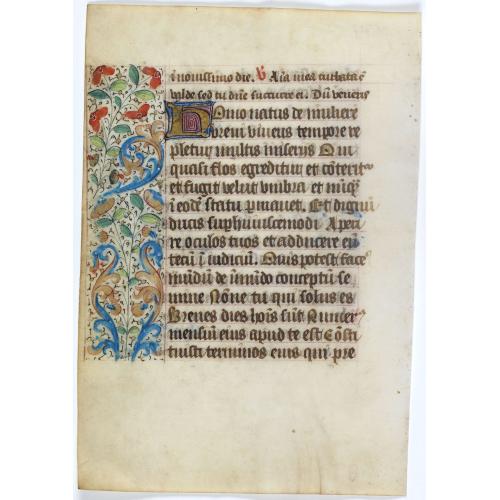 in novissimo die. V Aīa mea turbata ē
valde sed tu dn̄e succurre ei. Dū veneris
Homo natus de muliere
brevi vivens tempore re
pletur multis miseriis Qui
quasi flos egreditur et cōterit᷑
et fugit velut umbra et nūq̄
ī eodē statu permanet. Et dignū
ducis sup huiuscemodi Aperi
re oculos tuos et adducere eū
tecū ī iudiciū. Quis potest face᷑
mūdū de īmūdo conceptū se
mine Nōne tu qui solus es
Breves dies hoīs sūt Numer᷒
mensiū eius apud te est Cōsti
tuisti terminos eius qui pre